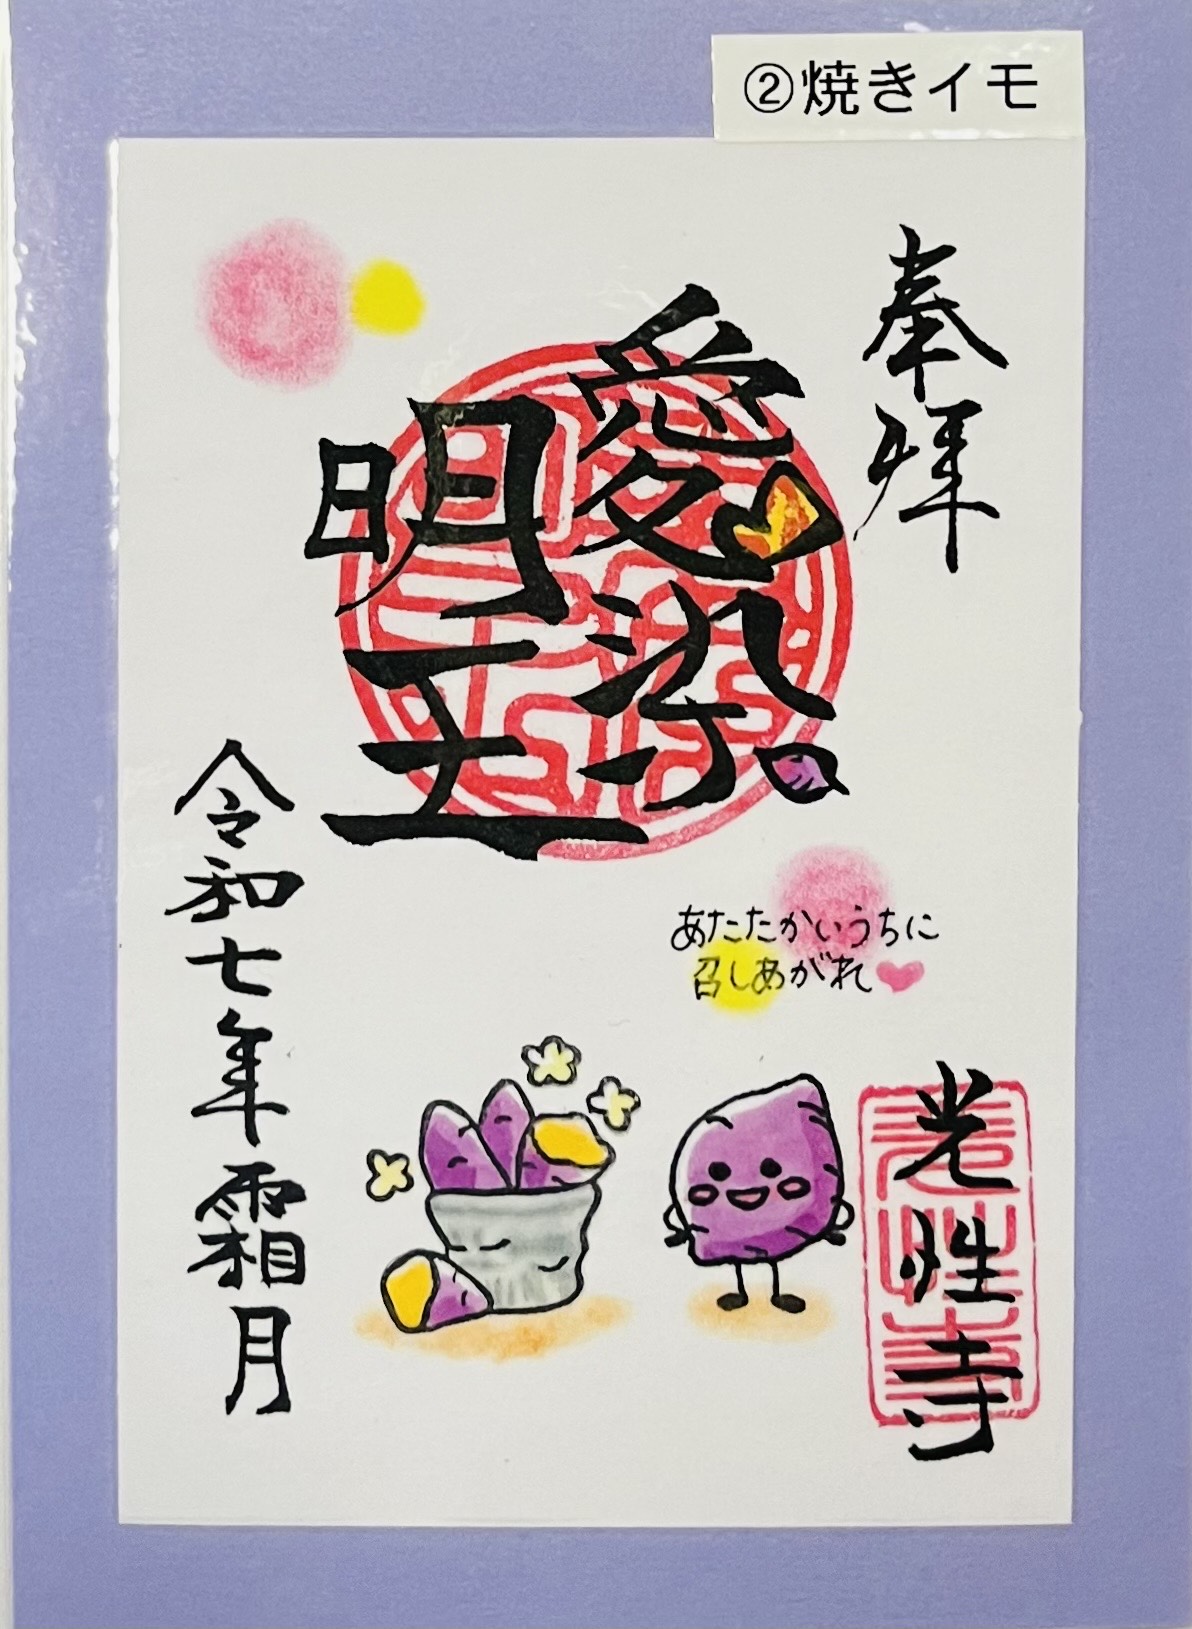 ②焼きイモ
奉拝
愛染
明王
あたたかいうちに
召しあがれ
光性寺
令和七年霜月